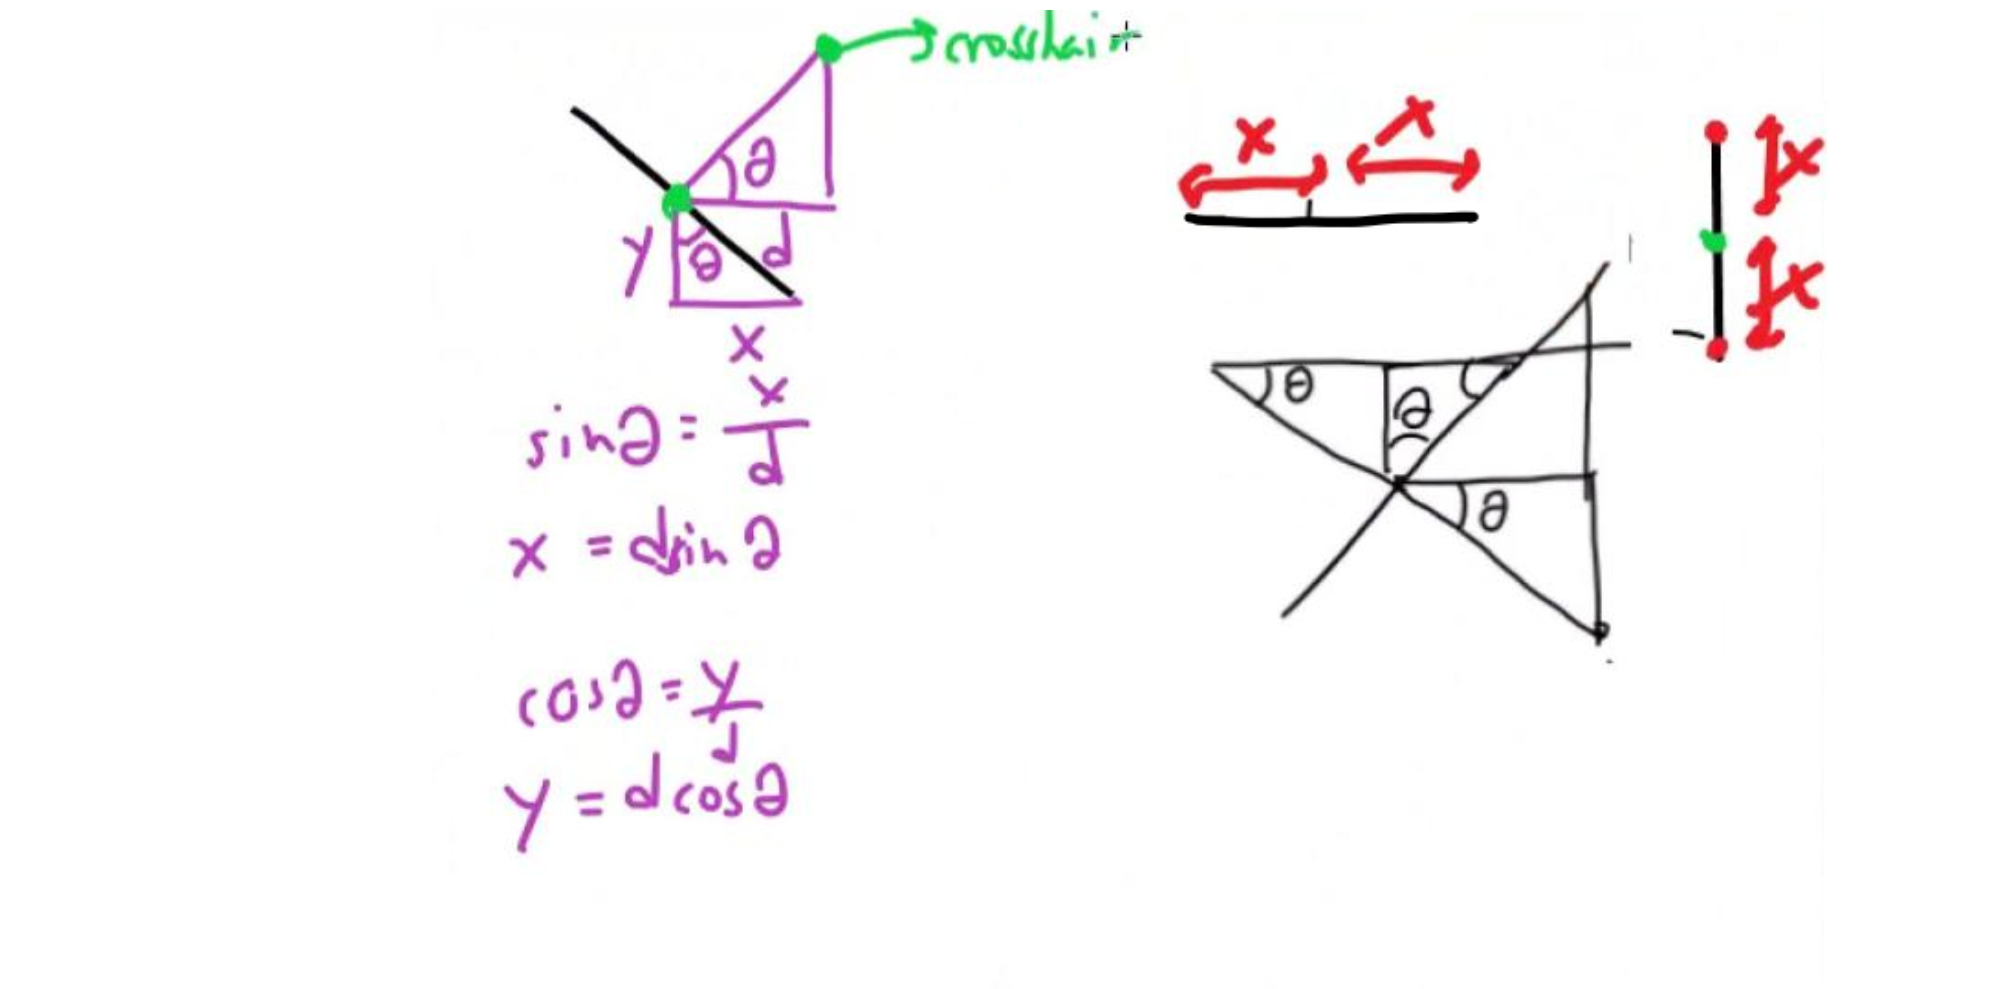 crosshair
θ
y
θ
d
x
sinθ = x/d
x = dsinθ
cosθ = y/d
y = dcosθ
x
x
x
x
θ
θ
θ